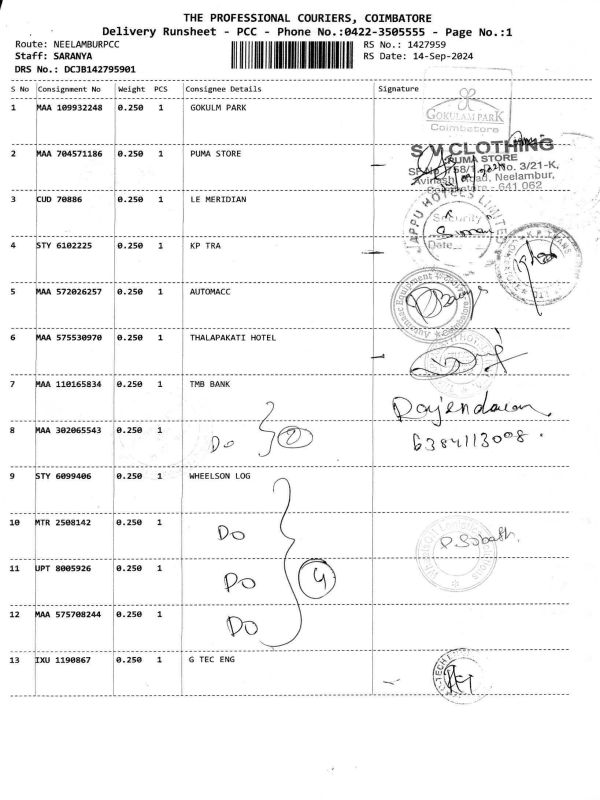 THE PROFESSIONAL COURIERS, COIMBATORE
Delivery Runsheet - PCC - Phone No.:0422-3505555 - Page No.:1
Route: NEELAMBURPCC RS No.: 1427959
Staff: SARANYA RS Date: 14-Sep-2024
DRS No.: DCJB142795901
S No Consignment No Weight PCS Consignee Details Signature
1 MAA 109932248 0.250 1 GOKULM PARK
GOKULAM PARK
Coimbatore
2 MAA 704571186 0.250 1 PUMA STORE
S V CLOTHING
PUMA STORE
No. 3/21-K,
Road, Neelambur,
641 062
3 CUD 70886 0.250 1 LE MERIDIAN
APPU HOTELS LIMITED
Security
Date
4 STY 6102225 0.250 1 KP TRA
5 MAA 572026257 0.250 1 AUTOMACC
6 MAA 575530970 0.250 1 THALAPAKATI HOTEL
7 MAA 110165834 0.250 1 TMB BANK
Rajendaran
6384113008.
8 MAA 302065543 0.250 1
Do 2
9 STY 6099406 0.250 1 WHEELSON LOG
10 MTR 2508142 0.250 1
Do
P. Sobath
11 UPT 8005926 0.250 1
Do 4
12 MAA 575708244 0.250 1
Do
13 IXU 1190867 0.250 1 G TEC ENG